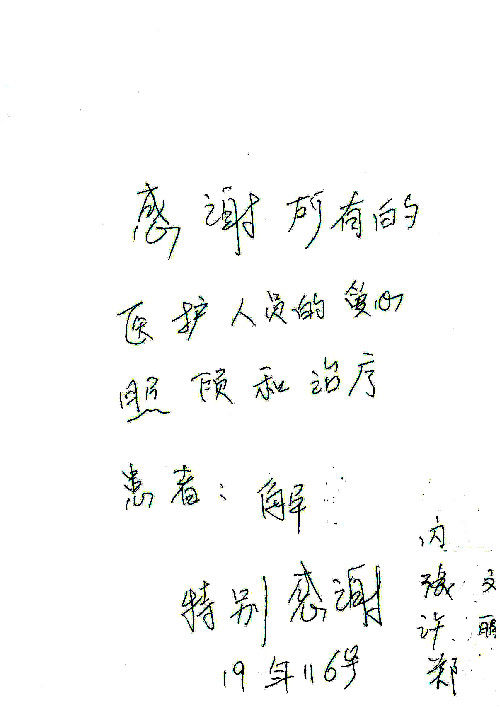 感谢所有的
医护人员的贴心
照顾和治疗
患者：解
特别感谢
19年116号
内
张 文
许 丽
郑